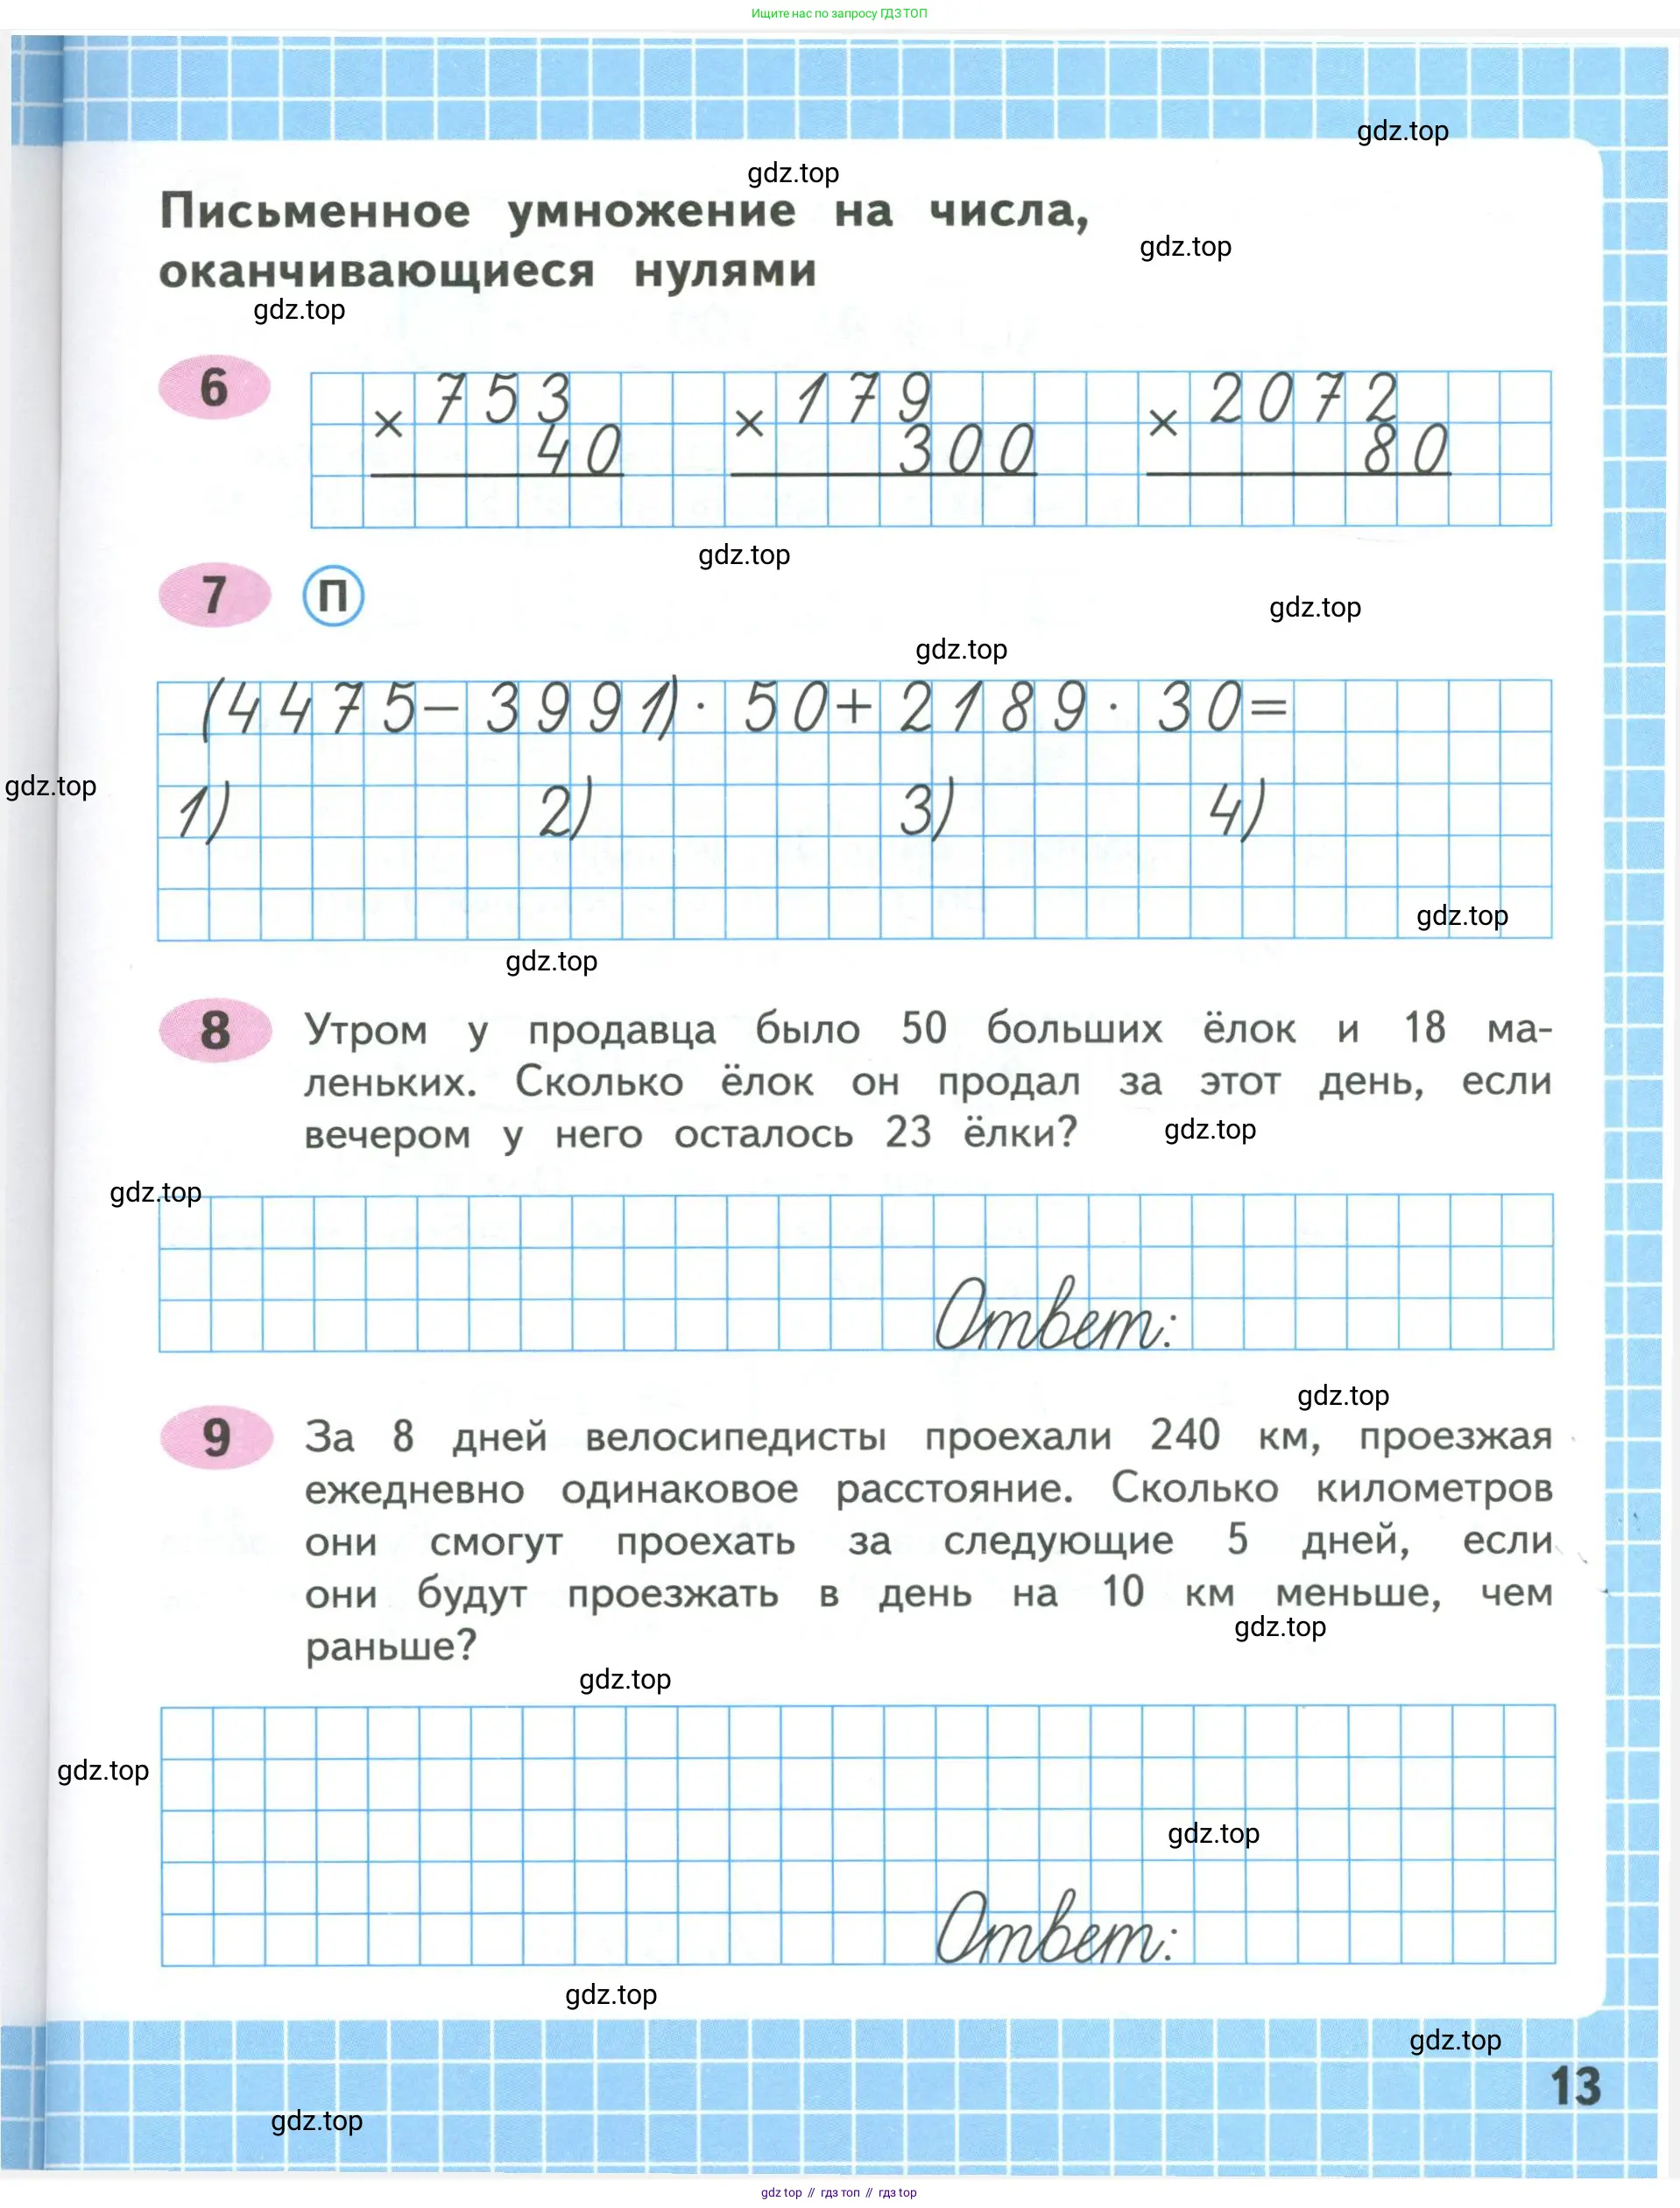 Ищите нас по запросу ГДЗ ТОП
gdz.top
gdz.top
Письменное умножение на числа,
gdz.top
оканчивающиеся нулями
gdz.top
6
× 753 × 179 × 2072
40 300 80
gdz.top
7 П
gdz.top
gdz.top
(4475−3991)· 50+2189· 30=
gdz.top
1) 2) 3) 4)
gdz.top
gdz.top
8 Утром у продавца было 50 больших ёлок и 18 ма-
леньких. Сколько ёлок он продал за этот день, если
вечером у него осталось 23 ёлки?
gdz.top
gdz.top
Ответ:
gdz.top
9 За 8 дней велосипедисты проехали 240 км, проезжая
ежедневно одинаковое расстояние. Сколько километров
они смогут проехать за следующие 5 дней, если
они будут проезжать в день на 10 км меньше, чем
gdz.top
раньше?
gdz.top
gdz.top
gdz.top
Ответ:
gdz.top
gdz.top
13
gdz.top
gdz top // гдз топ // gdz top